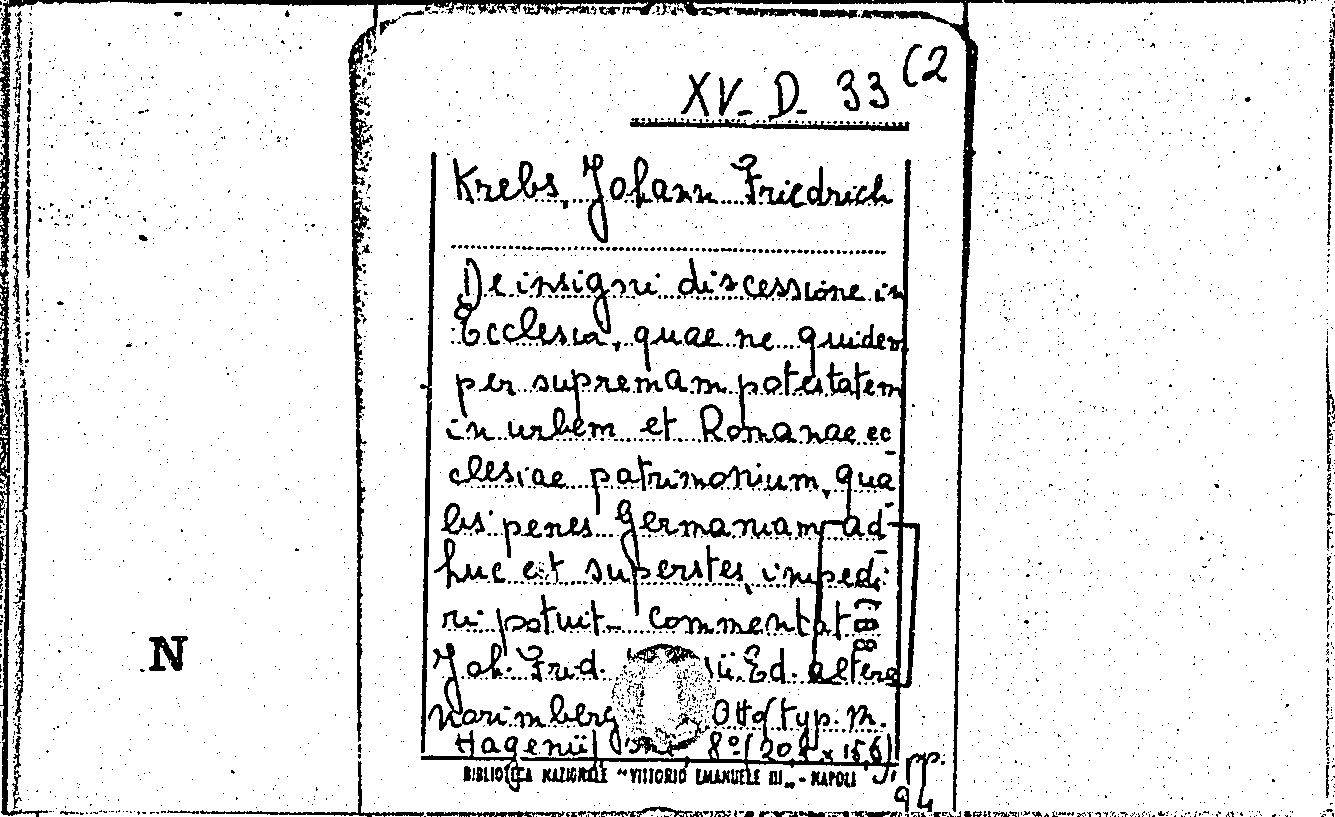 XV- D- 33 (2
Krebs, Johann Friedrich
De insigni discessione in
Ecclesia, quae ne quidem
per supremam potestatem
in urbem et Romanae ec-
clesiae patrimonium, qua-
lis penes Germaniam ad-
huc est superstes, impedi-
ri potuit- Commentat
Joh. Frid. Ed. altera
Norimberg Otto (typ. M.
Hagenii) 8° (20,2 x 15,6),
pp.
94
BIBLIOTECA NAZIONALE "VITTORIO EMANUELE III„ - NAPOLI
N